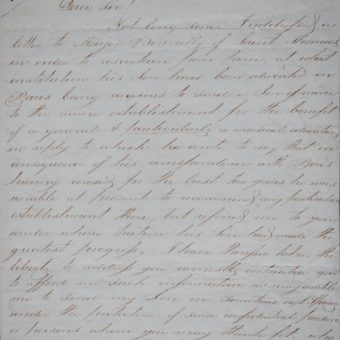 Dear Sir!
Not long since I addressed a
letter to Major Donnelly of Saint
in order to ascertain from him, at what
institution his Son had been educated in
Paris being anxious to send a Son of mine
to the same establishment for the benefit
of a general & particularly a musical education,
in reply to which he wrote to say that in
consequence of his correspondence with Paris
having ceased for the last two years he was
unable at present to recommend any particular
establishment there, but referred me to you
under whose tuition his Son had made the
greatest progress, I have therefore taken the
liberty to address you earnestly you
to afford me such information as may enable
me to send my Son
under the protection of some confidential person
or persons whom you may think fit, who